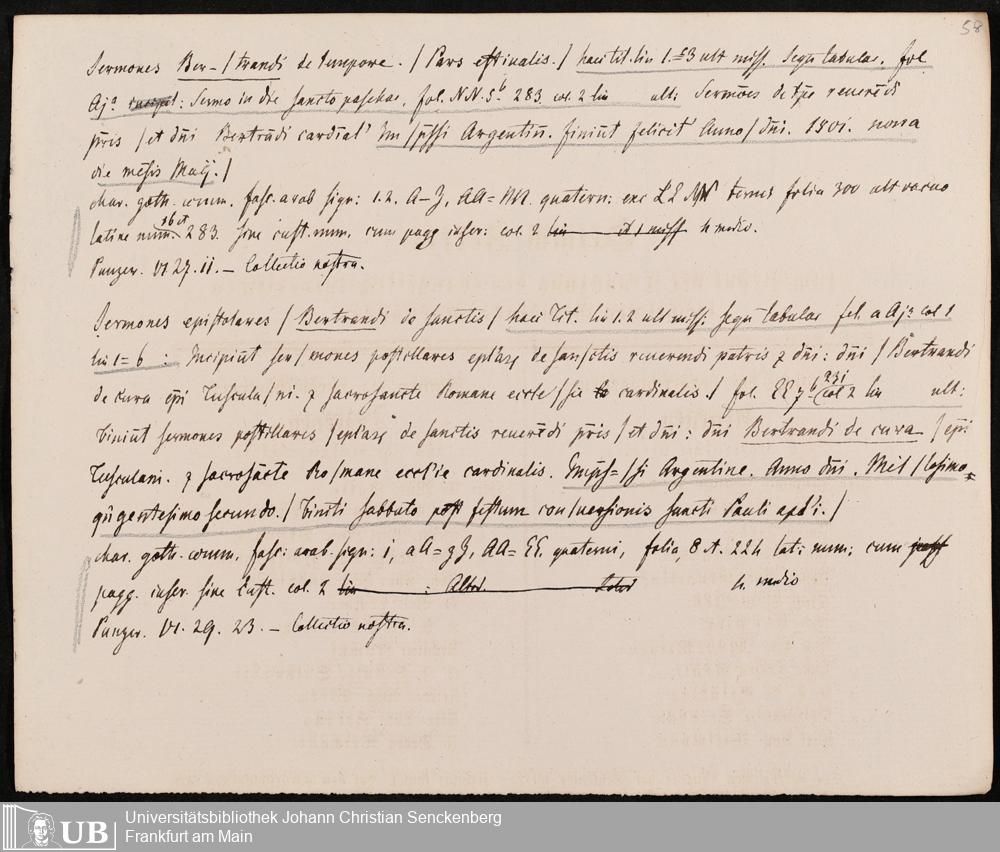 58
Sermones Ber-/trandi de tempore. / Pars estivalis. / haec tit. lin 1. 3 ult miss. Sequ tabulae. fol
Aja incipit: Sermo in die sancto paschae, fol. NN. 5b 283. col. 2 lin ult: Sermões de tpe reverēdi
pris / et dñi Bertrādi cardial' Im/pssi Argentiñ. finiūt felicit Anno / dñi. 1501. nona
die mēsis Maij. /
char. goth. comm. fasc. arab sign: 1.2. A-Z, AA= NN. quatern: exc LL NN ternis folia 300 ult vacuo
latine num. 16 et 283. sine cust. num. cum pagg inscr: col. 2 lin et 1 miss h medio.
Panzer. VI 27. 11. — Collectio nostra.
Sermones epistolares / Bertrandi de sanctis / haec Tit. lin 1.2 ult miss: sequ tabulae fol. a Aja col 1
lin 1=6 : Incipiūt ser/mones postillares de sanctis reverendi patris dñi: dñi / Bertrandi
de cura epi Tuscula/ni. sacrosancte Romane eccle/sie cardinalis / fol. EE 7b 231 col 2 lin ult:
Finiūt sermones postillares de sanctis reverēdi pris / et dñi: dñi Bertrandi de cura / epi
Tusculani. sacrosācte Ro/mane eccl'ie cardinalis. Impss=/si Argentine. Anno dñi. Mil/lesimo
qūgentesimo secundo. / Finiti sabbato post festum con/versionis sancti Pauli apl'i. /
char. goth. comm, fasc: arab. sign: 1, aA= zZ, AA= EE. quaterni, folia, 8 et. 224 lat: num; cum pagg
pagg. inscr. sine Cust. col. 2 lin : h. medio
Panzer. VI. 29. 23. — Collectio nostra.
UB Universitätsbibliothek Johann Christian Senckenberg
Frankfurt am Main